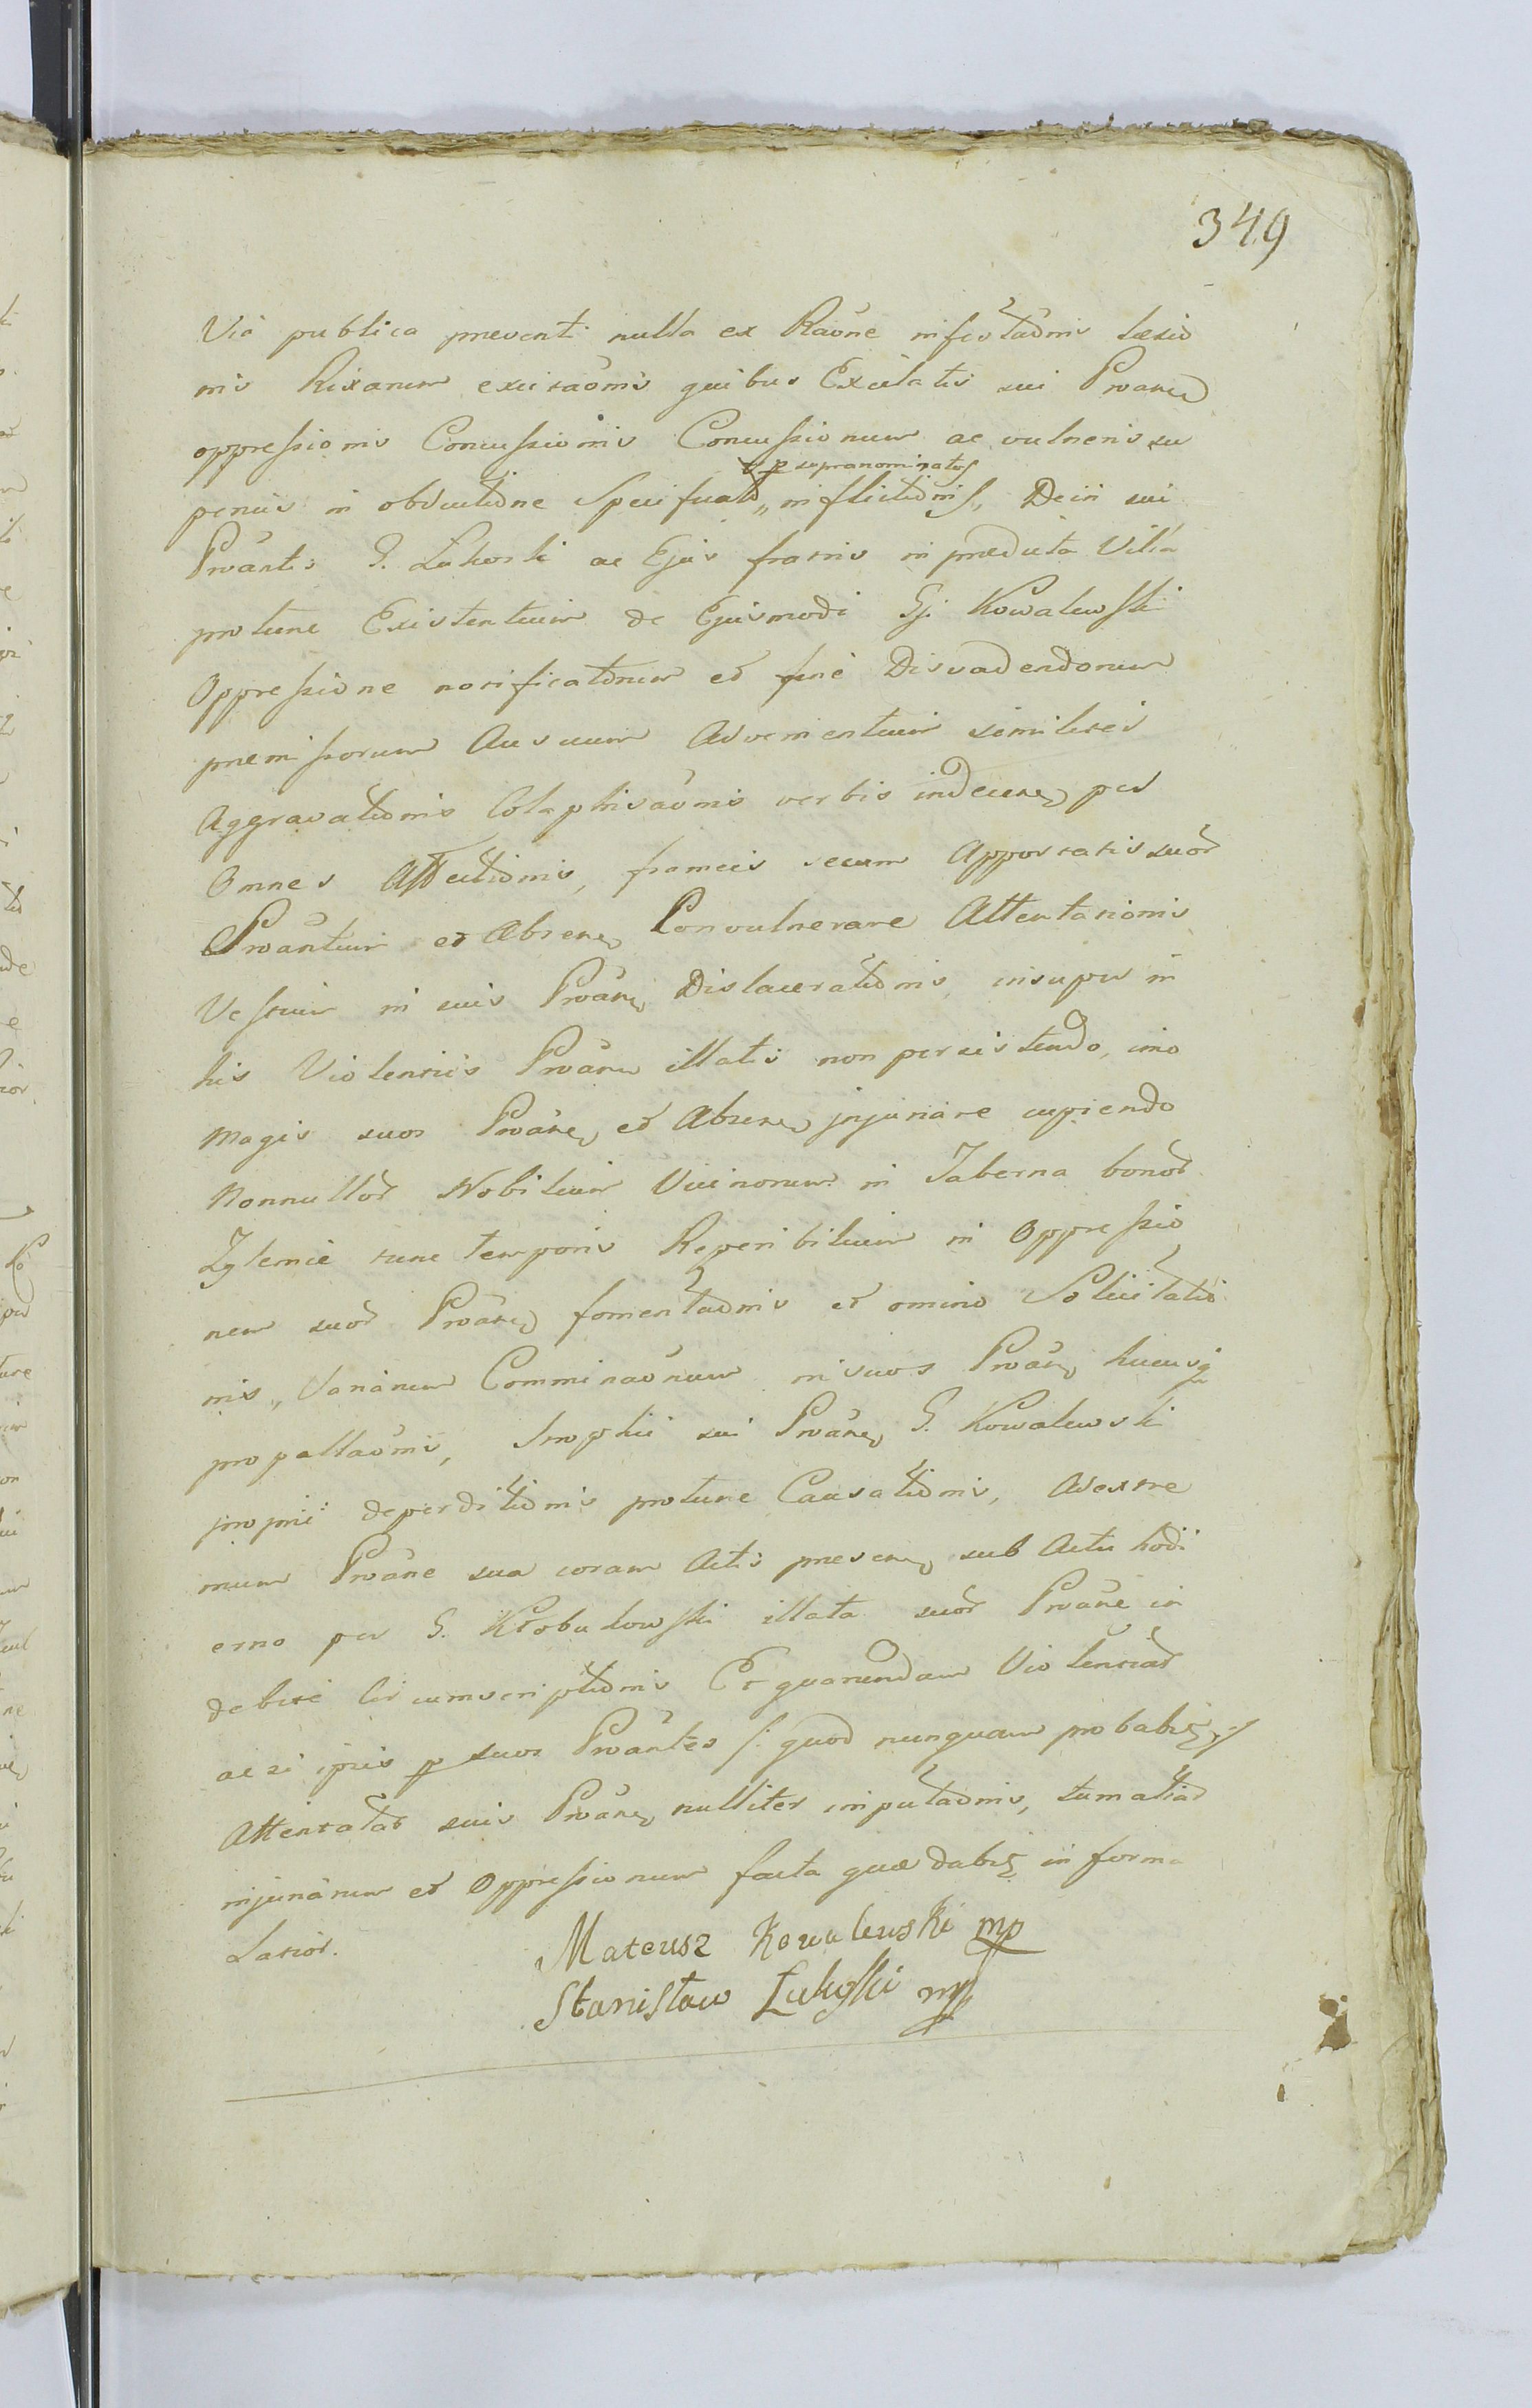 349
Via publica prevent: nulla ex Raõne infestaõnis læsio
nis Rixarum excitaõnis quibus Excitatis sui Proan
oppressionis Concussionis Concussionum ac vulneris su
p supranominatos
perius in obductione Specificat „ inflictionis, Dein sui
Proãntis G. Łukoski ac Ejus fratris in prædicta Villa
protunc Existentium de Ejusmodi G. Kowalewski
Oppressione notificatorum eo fine Disvadendorum
premissorum Ausuum Advenientium similiter
Aggravationis Colaphisaõnis verbis indecen per
Omnes Affectionis, frameis secum Apportatis suor
Proãntium et Absen Convulnerare Attentationis
Vestium in suis Proãn Dislacerationis, insuper in
his Violentiis Proãn illatis non persistendo, imo
Magis suos Proãn et Absen injuriare cupiendo
Nonnullor Nobilium Vicinorum in Taberna bonor
tunc temporis Reperibilium in Oppressio
nem suor Proãn fomentaõnis et omnino Solicitatio
nis, Variarum Comminaõnum in suos Proãn hucusq
propallaõnis, sui Proãn G. Kowalewski
proprii deperditionis protunc Causationis, Ad extre
mum Proãne sua coram Actis presen sub Actu hodi
erno per G. Kłobukowski illata suor Proãne in
debite Circumscriptionis Et quarundam Violentiar
ac si ipsis p suos Proãntes /: quod nunquam probabit :/
Attentatar suis Proãn nulliter imputaõnis, tum aliar
injuriarum et Oppressionum facta quæ dabit in forma
Latior.
Mateusz Kowalewski mp
Stanisław Łukoski mp